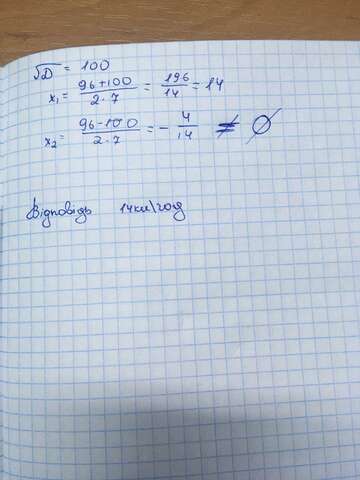 √D = 100
x₁ = (96+100)/(2·7) = 196/14 = 14
x₂ = (96-100)/(2·7) = - 4/14 ≠ ∅
Відповідь 14км\год